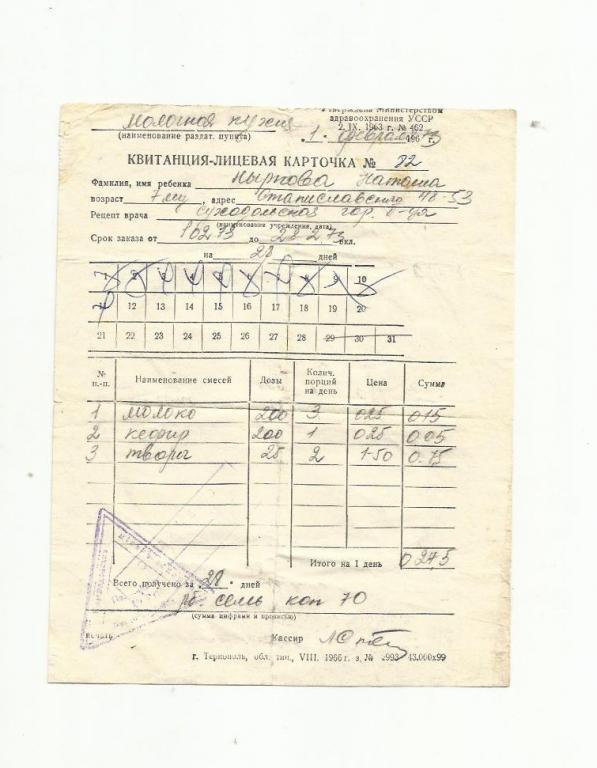 Утверждена Министерством
здравоохранения УССР
2.IX. 1963 г. № 462
Молочная кухня
(наименование раздат. пункта)
„1“ февраля 1973 г.
КВИТАНЦИЯ-ЛИЦЕВАЯ КАРТОЧКА № 82
Фамилия, имя ребенка Наташа
возраст 7 м, адрес Станиславского 53
Рецепт врача гор.
(наименование учреждения, дата)
Срок заказа от 1 02 73 до 28-2-73 вкл.
на 28 дней
1 2 3 4 5 6 7 8 9 10
11 12 13 14 15 16 17 18 19 20
21 22 23 24 25 26 27 28 29 30 31
№ п.-п. Наименование смесей Дозы Колич. порций на день Цена Сумма
1 молоко 200 3 025 015
2 кефир 200 1 025 0.05
3 творог 25 2 1-50 0.75
Итого на 1 день 0 27,5
Всего получено за 28 дней
рб. семь коп 70
(сумма цифрами и прописью)
Кассир
г. Тернополь, обл. тип., VIII. 1966 г. з. № 2993 43.000х99